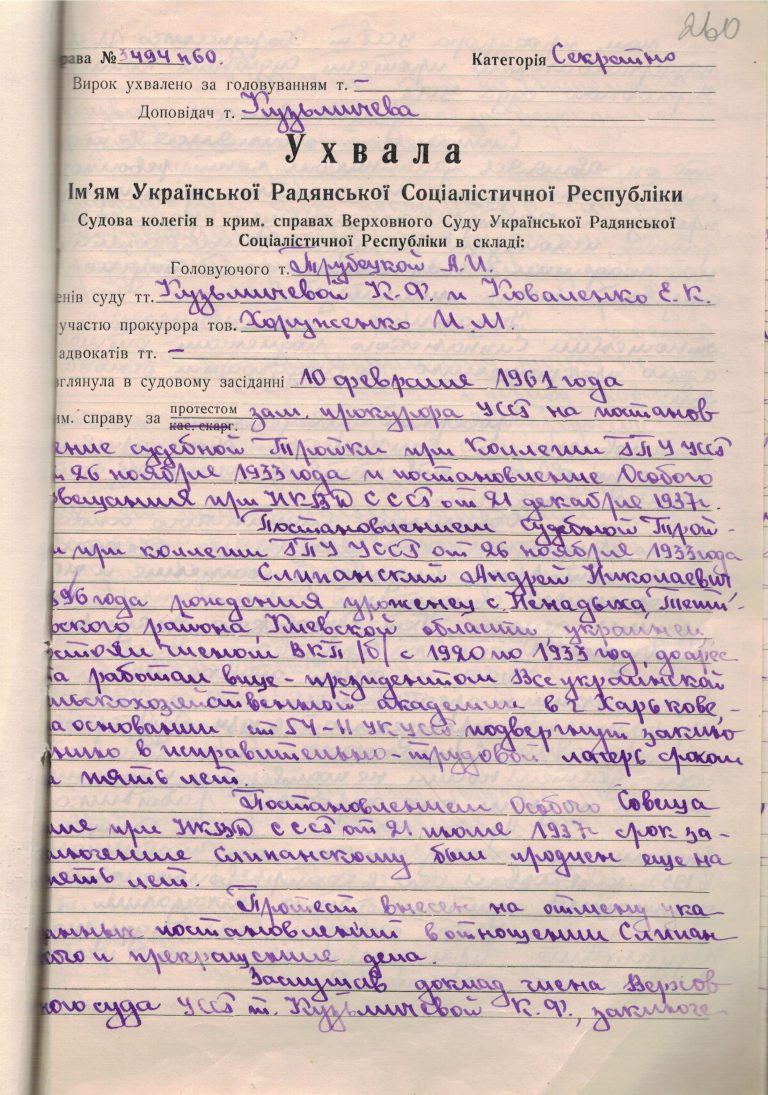 260
рава № 3494п60. Категорія Секретно
Вирок ухвалено за головуванням т. –
Доповідач т. Кузьмичева
Ухвала
Ім’ям Української Радянської Соціалістичної Республіки
Судова колегія в крим. справах Верховного Суду Української Радянської
Соціалістичної Республіки в складі:
Головуючого т. Трубецкой А.И.
енів суду тт. Кузьмичевой К.Ф. и Коваленко Е.К.
участю прокурора тов. Хоруженко И.М.
адвокатів тт. –
зглянула в судовому засіданні 10 февраля 1961 года
им. справу за протестом
кас. скарг. зам. прокурора УССР на постанов
ение судебной Тройки при Коллегии ГПУ УССР
26 ноября 1933 года и постановление Особого
вещания при НКВД СССР от 21 декабря 1937г.
Постановлением судебной Трой-
и при коллегии ГПУ УССР от 26 ноября 1933 года
Слипанский Андрей Николаевич
896 года рождения, уроженец с. Ненадыха, Тети-
ского района, Киевской области, украинец,
стоял членом ВКП/б/ с 1920 по 1933 год, до арес
а работал вице-президентом Всеукраинской
льскохозяйственной академии в г. Харькове, –
а основании ст 54-11 УК УССР подвергнут заклю
ению в исправительно-трудовой лагерь сроком
а пять лет.
Постановлением Особого Совеща
ия при НКВД СССР от 21 июля 1937г срок за-
лючение Слипанскому был продлен еще на
ять лет.
Протест внесен на отмену ука
анных постановлений в отношении Слипан
кого и прекращение дела.
Заслушав доклад члена Верхов
ного суда УССР т. Кузьмичевой К.Ф., заключе